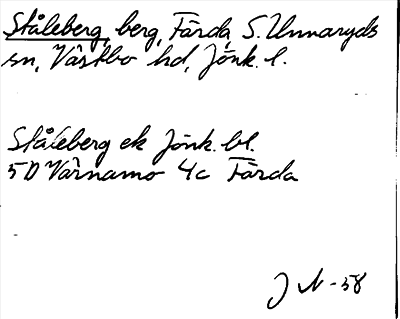 Ståleberg, berg, Färda, S. Unnaryds
sn, Västbo hd, Jönk. l.
Ståleberg ek Jönk. bl.
5D Värnamo 4c Färda
J N-58